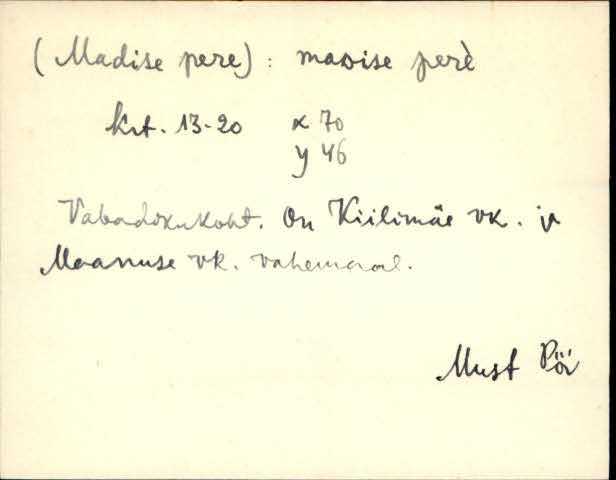 (Madise pere) : maδise perè
krt. 13-20 x 70
y 46
Vabadikukoht. On Kiilimäe vk. ja
Maanuse vk. vahemaal.
Must Pöi